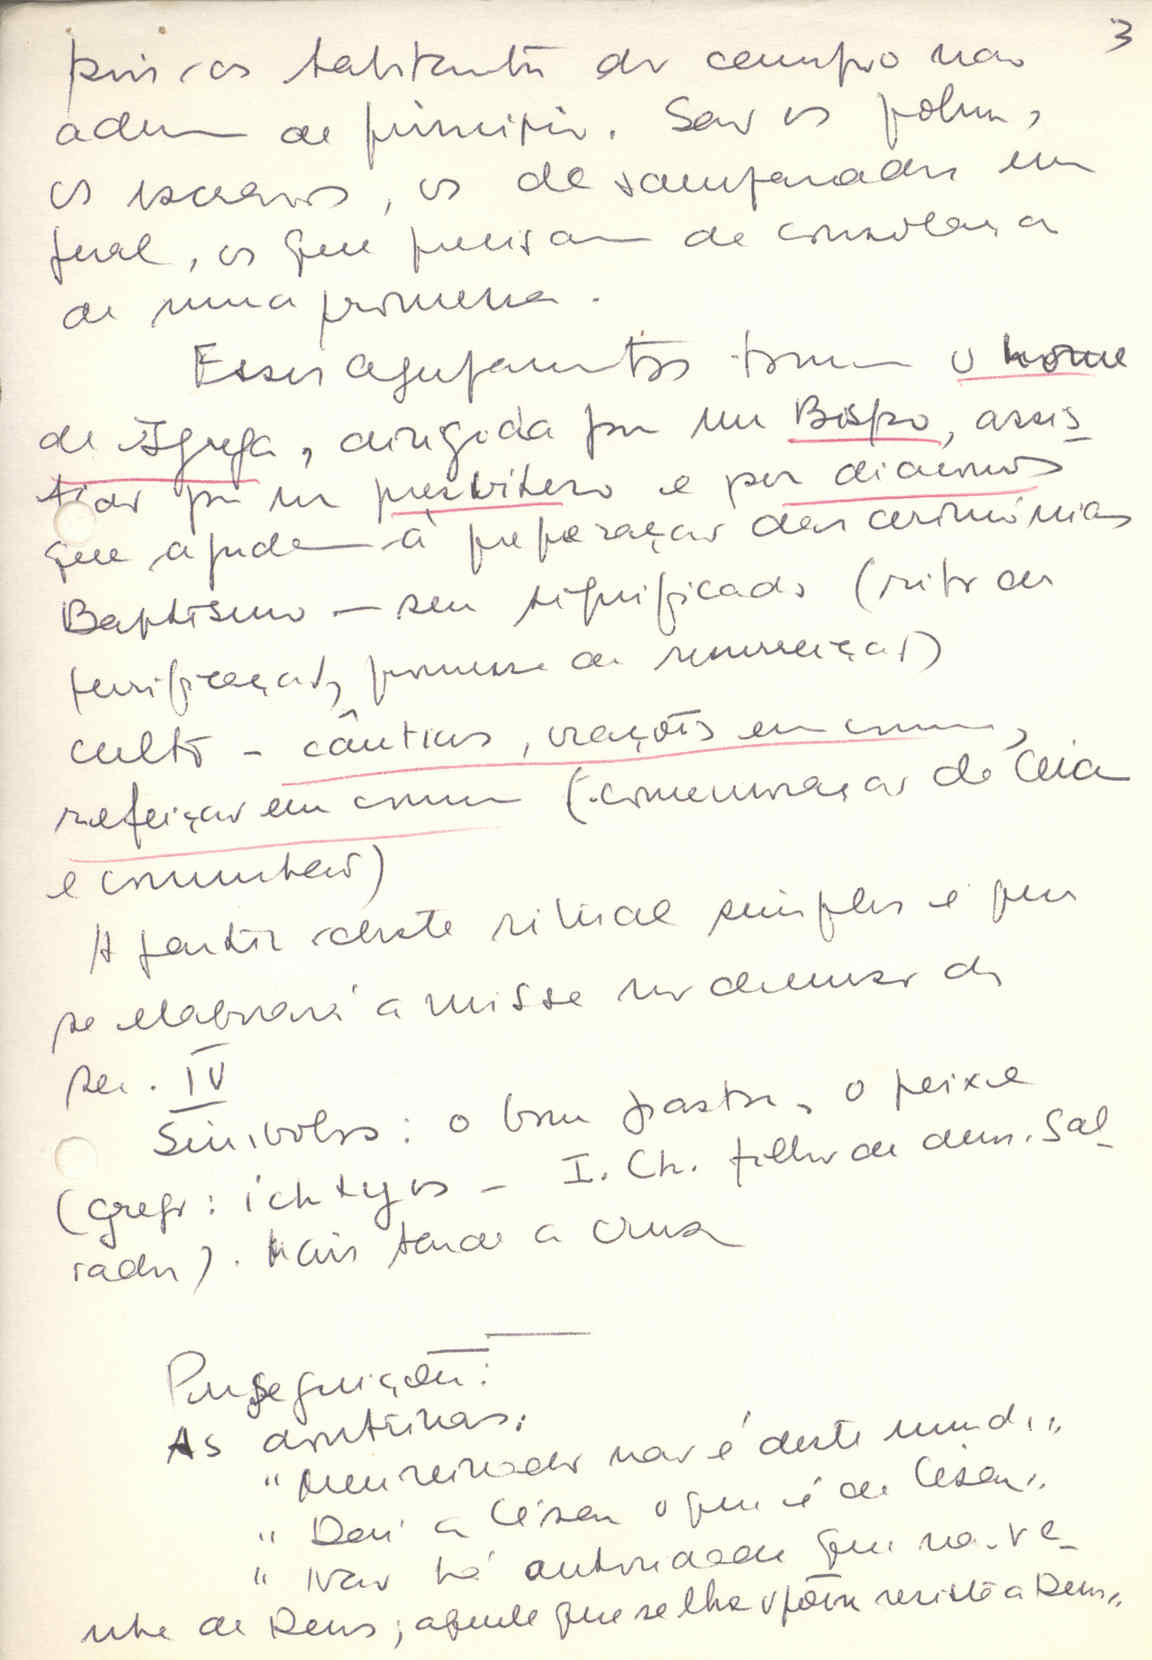 3
pois os habitantes do campo não
aderem de princípio. São os pobres,
os escravos, os desamparados em
geral, os que precisam de consolação
de uma promessa.
Esses agrupamentos tomam o nome
de Igreja, dirigida por um Bispo, assis-
tido por um presbítero e por diáconos
que ajudam à preparação das cerimónias
Baptismo – seu significado (rito de
purificação, promessa de ressurreição)
culto – cânticos, orações em comum,
refeição em comum (comemoração da Ceia
e comunhão)
A partir deste ritual simples é que
se elaborará a missa no decurso do
séc. IV
Símbolos: o bom pastor, o peixe
(grego: ichtyos – I. Ch. filho de deus. Sal-
vador). Mais tarde a cruz
Perseguições:
As doutrinas:
"Meu reino não é deste mundo"
"Dai a César o que é de César"
"Não há autoridade que não ve-
nha de Deus; aquele que se lhe opõe resiste a Deus"